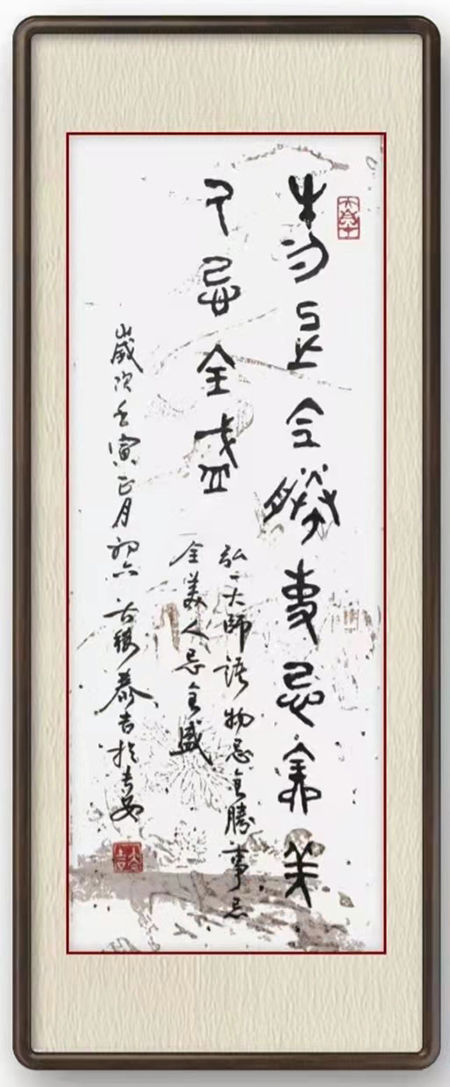 物忌全勝事忌全美
人忌全盛
弘一大師語物忌全勝事忌
全美人忌全盛
歲次壬寅正月初六 於長安